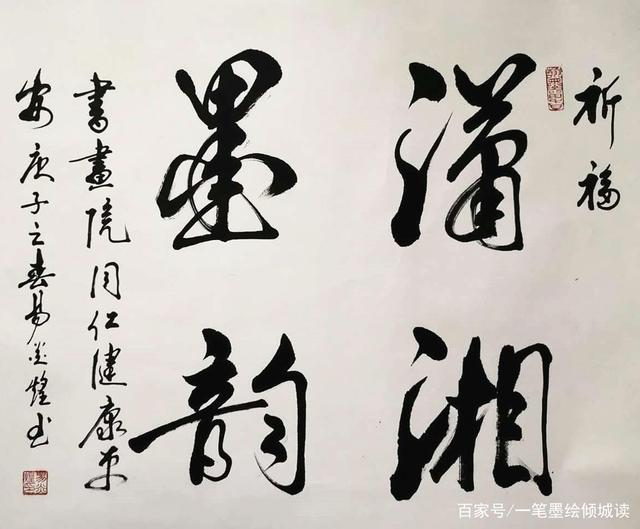 祈福
瀟湘
墨韻
書畫院同仁健康平
安庚子之春易煌书
百家号/一笔墨绘倾城读